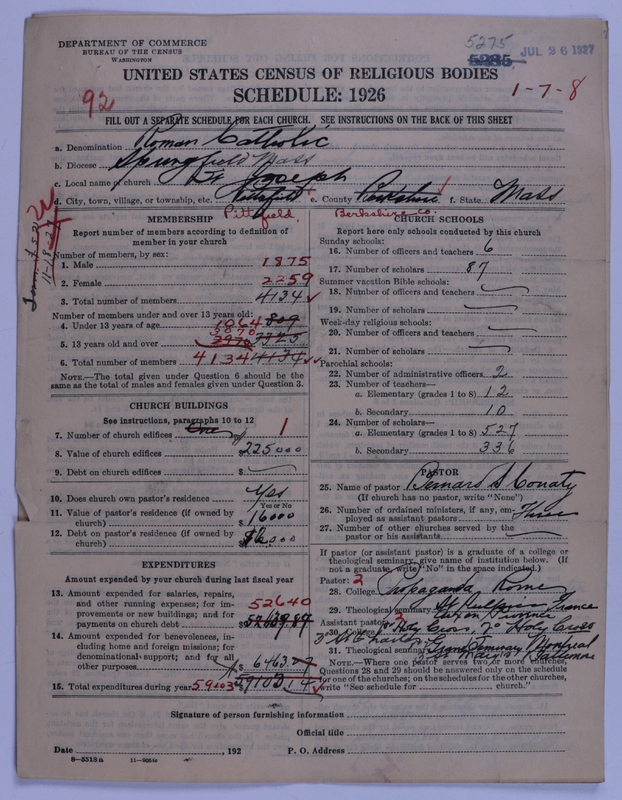 DEPARTMENT OF COMMERCE
BUREAU OF THE CENSUS
WASHINGTON
5275
5235
JUL 26 1927
UNITED STATES CENSUS OF RELIGIOUS BODIES
SCHEDULE: 1926
92
1-7-8
FILL OUT A SEPARATE SCHEDULE FOR EACH CHURCH. SEE INSTRUCTIONS ON THE BACK OF THIS SHEET
a. Denomination Roman Catholic
b. Diocese Springfield Mass
c. Local name of church St Joseph
d. City, town, village, or township, etc. Pittsfield e. County Berkshire f. State Mass
Pittsfield, Berkshire co.
MEMBERSHIP
Report number of members according to definition of member in your church
Number of members, by sex:
1. Male 1875
2. Female 2259
3. Total number of members 4134
Number of members under and over 13 years old:
4. Under 13 years of age 1064 809
3070
5. 13 years old and over
6. Total number of members 4134 4134
NOTE.—The total given under Question 6 should be the same as the total of males and females given under Question 3.
CHURCH BUILDINGS
See instructions, paragraphs 10 to 12
7. Number of church edifices One 1
8. Value of church edifices $ 225000
9. Debt on church edifices $
10. Does church own pastor's residence Yes
Yes or No
11. Value of pastor's residence (if owned by church) $ 16000
12. Debt on pastor's residence (if owned by church) $6,000
EXPENDITURES
Amount expended by your church during last fiscal year
13. Amount expended for salaries, repairs, and other running expenses; for improvements or new buildings; and for payments on church debt 52640
14. Amount expended for benevolences, including home and foreign missions; for denominational support; and for all other purposes 6463.27
15. Total expenditures during year 59103 59103 14
CHURCH SCHOOLS
Report here only schools conducted by this church
Sunday schools:
16. Number of officers and teachers 6
17. Number of scholars 87
Summer vacation Bible schools:
18. Number of officers and teachers
19. Number of scholars
Week-day religious schools:
20. Number of officers and teachers
21. Number of scholars
Parochial schools:
22. Number of administrative officers 2
23. Number of teachers—
a. Elementary (grades 1 to 8) 12
b. Secondary 10
24. Number of scholars—
a. Elementary (grades 1 to 8) 527
b. Secondary 336
PASTOR
25. Name of pastor Bernard S Conaty
(If church has no pastor, write "None")
26. Number of ordained ministers, if any, employed as assistant pastors Three
27. Number of other churches served by the pastor or his assistants
If pastor (or assistant pastor) is a graduate of a college or theological seminary, give name of institution below. (If not a graduate, write "No" in the space indicated.)
Pastor: 2
28. College Propaganda Rome
29. Theological seminary St Sulpice France
Assistant pastor:
30. College 1° Holy Cross, 2° Holy Cross
31. Theological seminary Grand Seminary Montreal
Baltimore
NOTE.—Where one pastor serves two or more churches, Questions 28 and 29 should be answered only on the schedule for one of the churches; on the schedules for the other churches, write "See schedule for church."
Signature of person furnishing information
Official title
Date , 192 P. O. Address
8—5518a 11—